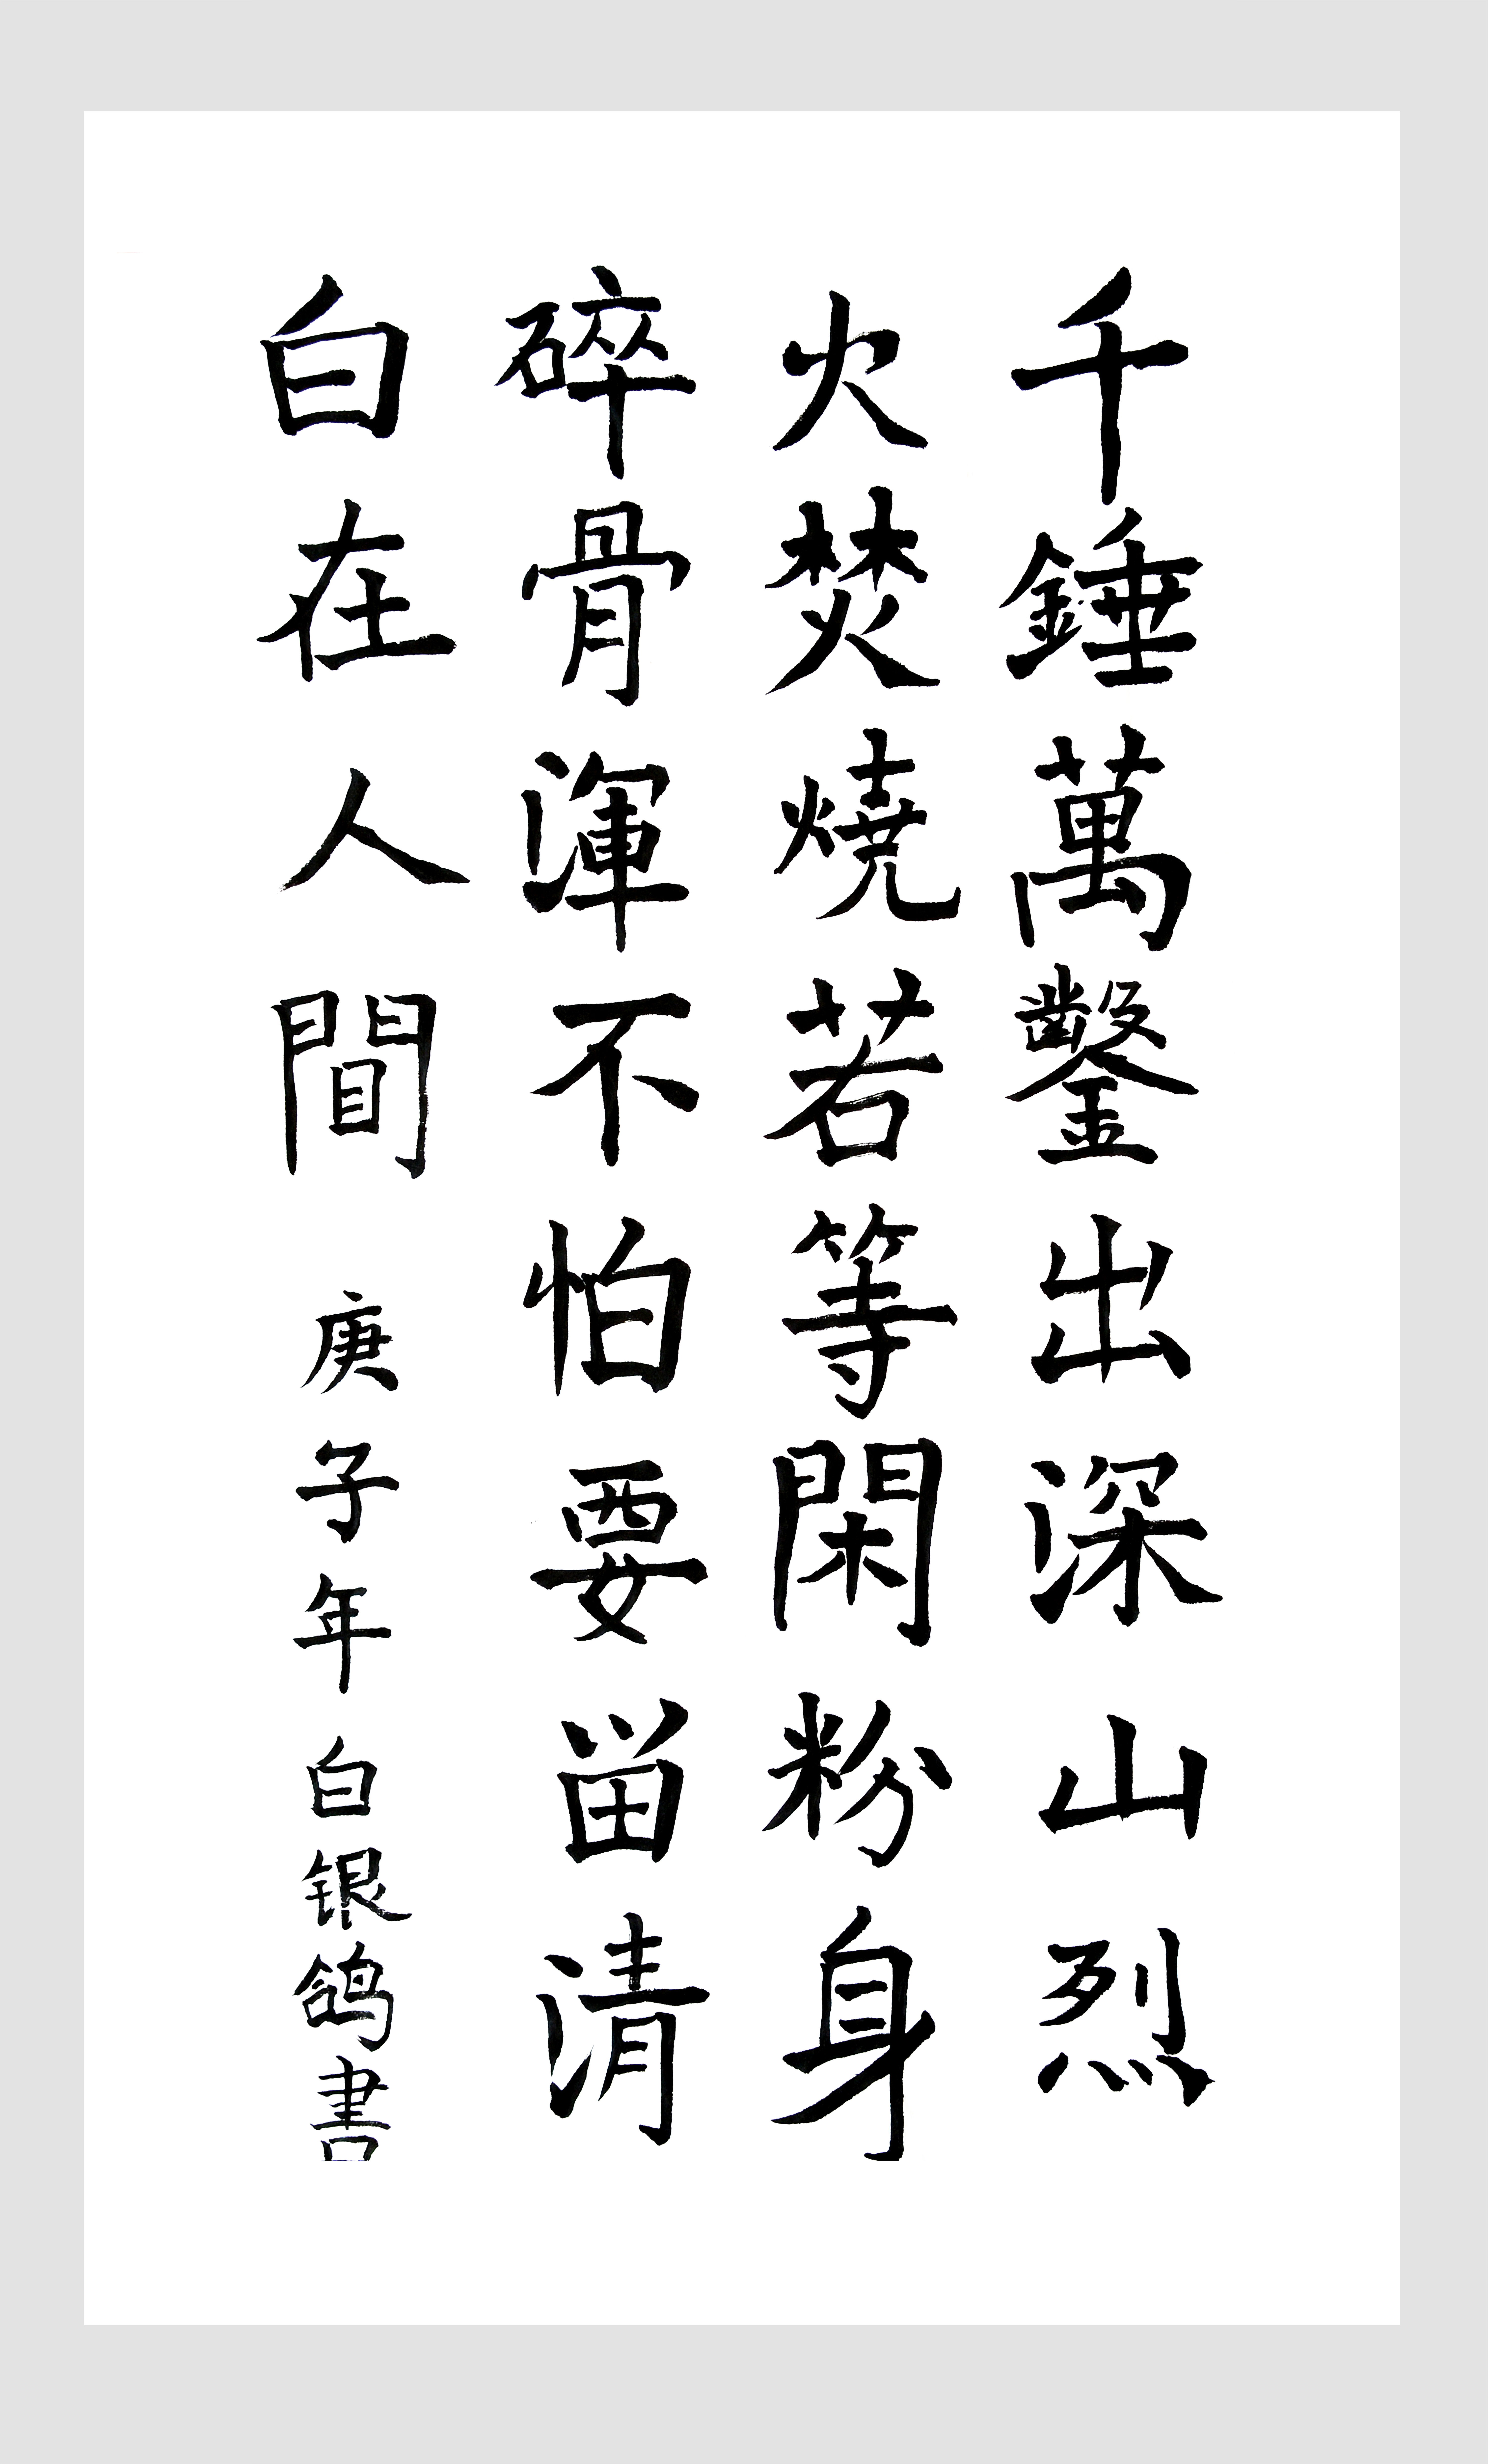 千錘萬鑿出深山烈
火焚燒若等閑粉身
碎骨渾不怕要畱清
白在人間 庚子年白银鸽書